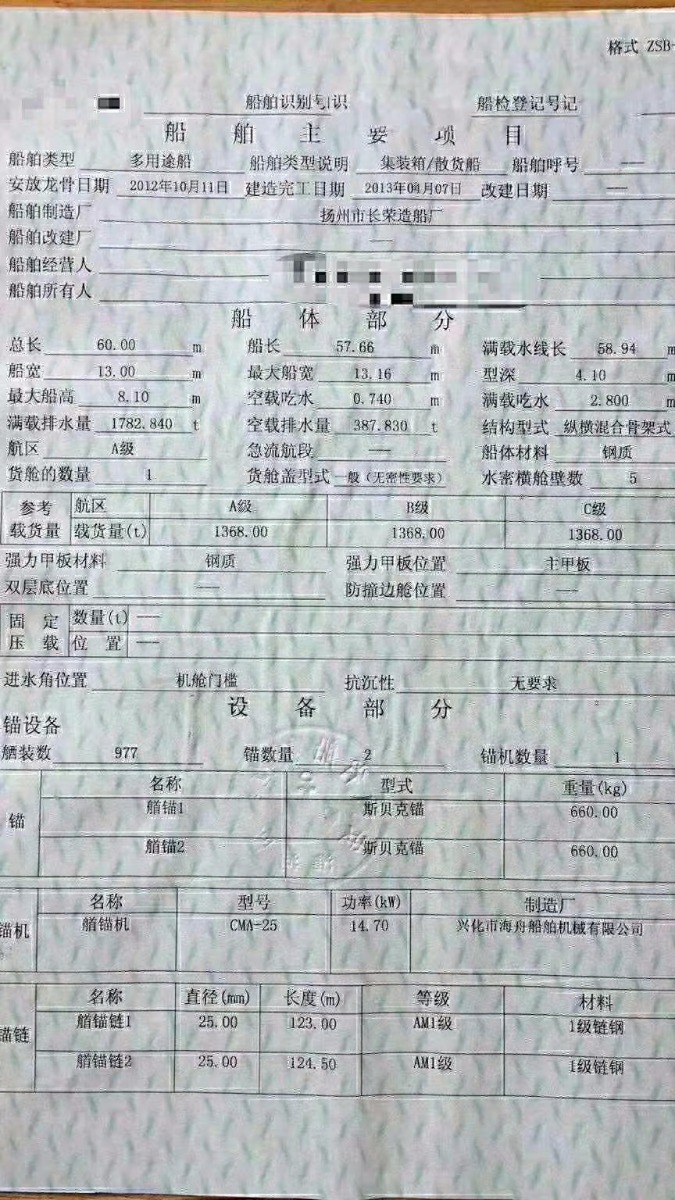 格式 ZSB-
船舶识别号 识 船检登记号 记
船 舶 主 要 项 目
船舶类型 多用途船 船舶类型说明 集装箱/散货船 船舶呼号 ——
安放龙骨日期 2012年10月11日 建造完工日期 2013年 月07日 改建日期 ——
船舶制造厂 扬州市长荣造船厂
船舶改建厂 ——
船舶经营人
船舶所有人
船 体 部 分
总长 60.00 m 船长 57.66 m 满载水线长 58.94 m
船宽 13.00 m 最大船宽 13.16 m 型深 4.10 m
最大船高 8.10 m 空载吃水 0.740 m 满载吃水 2.800 m
满载排水量 1782.840 t 空载排水量 387.830 t 结构型式 纵横混合骨架式
航区 A级 急流航段 —— 船体材料 钢质
货舱的数量 1 货舱盖型式 一般(无密性要求) 水密横舱壁数 5
参考 航区 A级 B级 C级
载货量 载货量(t) 1368.00 1368.00 1368.00
强力甲板材料 钢质 强力甲板位置 主甲板
双层底位置 —— 防撞边舱位置 ——
固 定 数量(t) ——
压 载 位 置 ——
进水角位置 机舱门槛 抗沉性 无要求
设 备 部 分
锚设备
舾装数 977 锚数量 2 锚机数量 1
名称 型式 重量(kg)
锚 艏锚1 斯贝克锚 660.00
艏锚2 斯贝克锚 660.00
名称 型号 功率(kW) 制造厂
锚机 艏锚机 CMA-25 14.70 兴化市海舟船舶机械有限公司
名称 直径(mm) 长度(m) 等级 材料
锚链 艏锚链1 25.00 123.00 AM1级 1级链钢
艏锚链2 25.00 124.50 AM1级 1级链钢